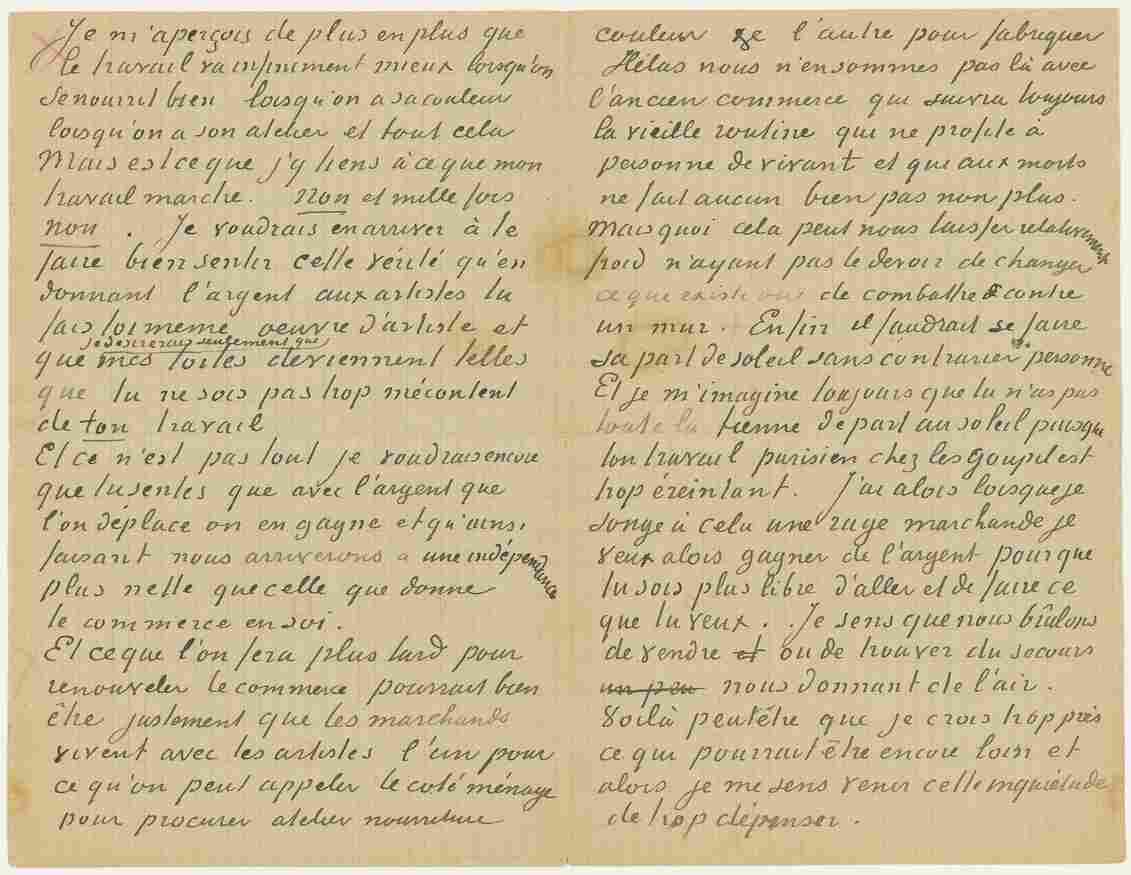 Je m'aperçois de plus en plus que
le travail va infiniment mieux lorsqu'on
se nourrit bien lorsqu'on a sa couleur
lorsqu'on a son atelier et tout cela
Mais est ce que j'y tiens à ce que mon
travail marche. Non et mille fois
non. Je voudrais en arriver à te
faire bien sentir cette vérité qu'en
donnant l'argent aux artistes tu
fais toi meme oeuvre d'artiste et
je desirerais seulement que
que mes toiles deviennent telles
que tu ne sois pas trop mécontent
de ton travail
Et ce n'est pas tout je voudrais encore
que tu sentes que avec l'argent que
l'on déplace on en gagne et qu'ainsi
faisant nous arriverions a une indépendance
plus nette que celle que donne
le commerce en soi.
Et ce que l'on fera plus tard pour
renouveler le commerce pourrait bien
être justement que les marchands
vivent avec les artistes l'un pour
ce qu'on peut appeler le coté ménage
pour procurer atelier nourriture
couleur l'autre pour fabriquer
Hélas nous n'en sommes pas là avec
l'ancien commerce qui suivra toujours
la vieille routine qui ne profite à
personne de vivant et qui aux morts
ne fait aucun bien pas non plus.
Mais quoi cela peut nous laisser relativement
froid n'ayant pas le devoir de changer
ce que existe ou de combattre contre
un mur. Enfin il faudrait se faire
sa part de soleil sans contrarier personne
Et je m'imagine toujours que tu n'as pas
toute la tienne de part au soleil puisque
ton travail parisien chez les Goupil est
trop éreintant. J'ai alors lorsque je
songe à cela une rage marchande je
veux alors gagner de l'argent pour que
tu sois plus libre d'aller et de faire ce
que tu veux. Je sens que nous brûlons
de vendre et ou de trouver du secours
un peu nous donnant de l'air.
Voilà peutêtre que je crois trop près
ce qui pourrait être encore loin et
alors je me sens venir cette inquiétude
de trop dépenser.